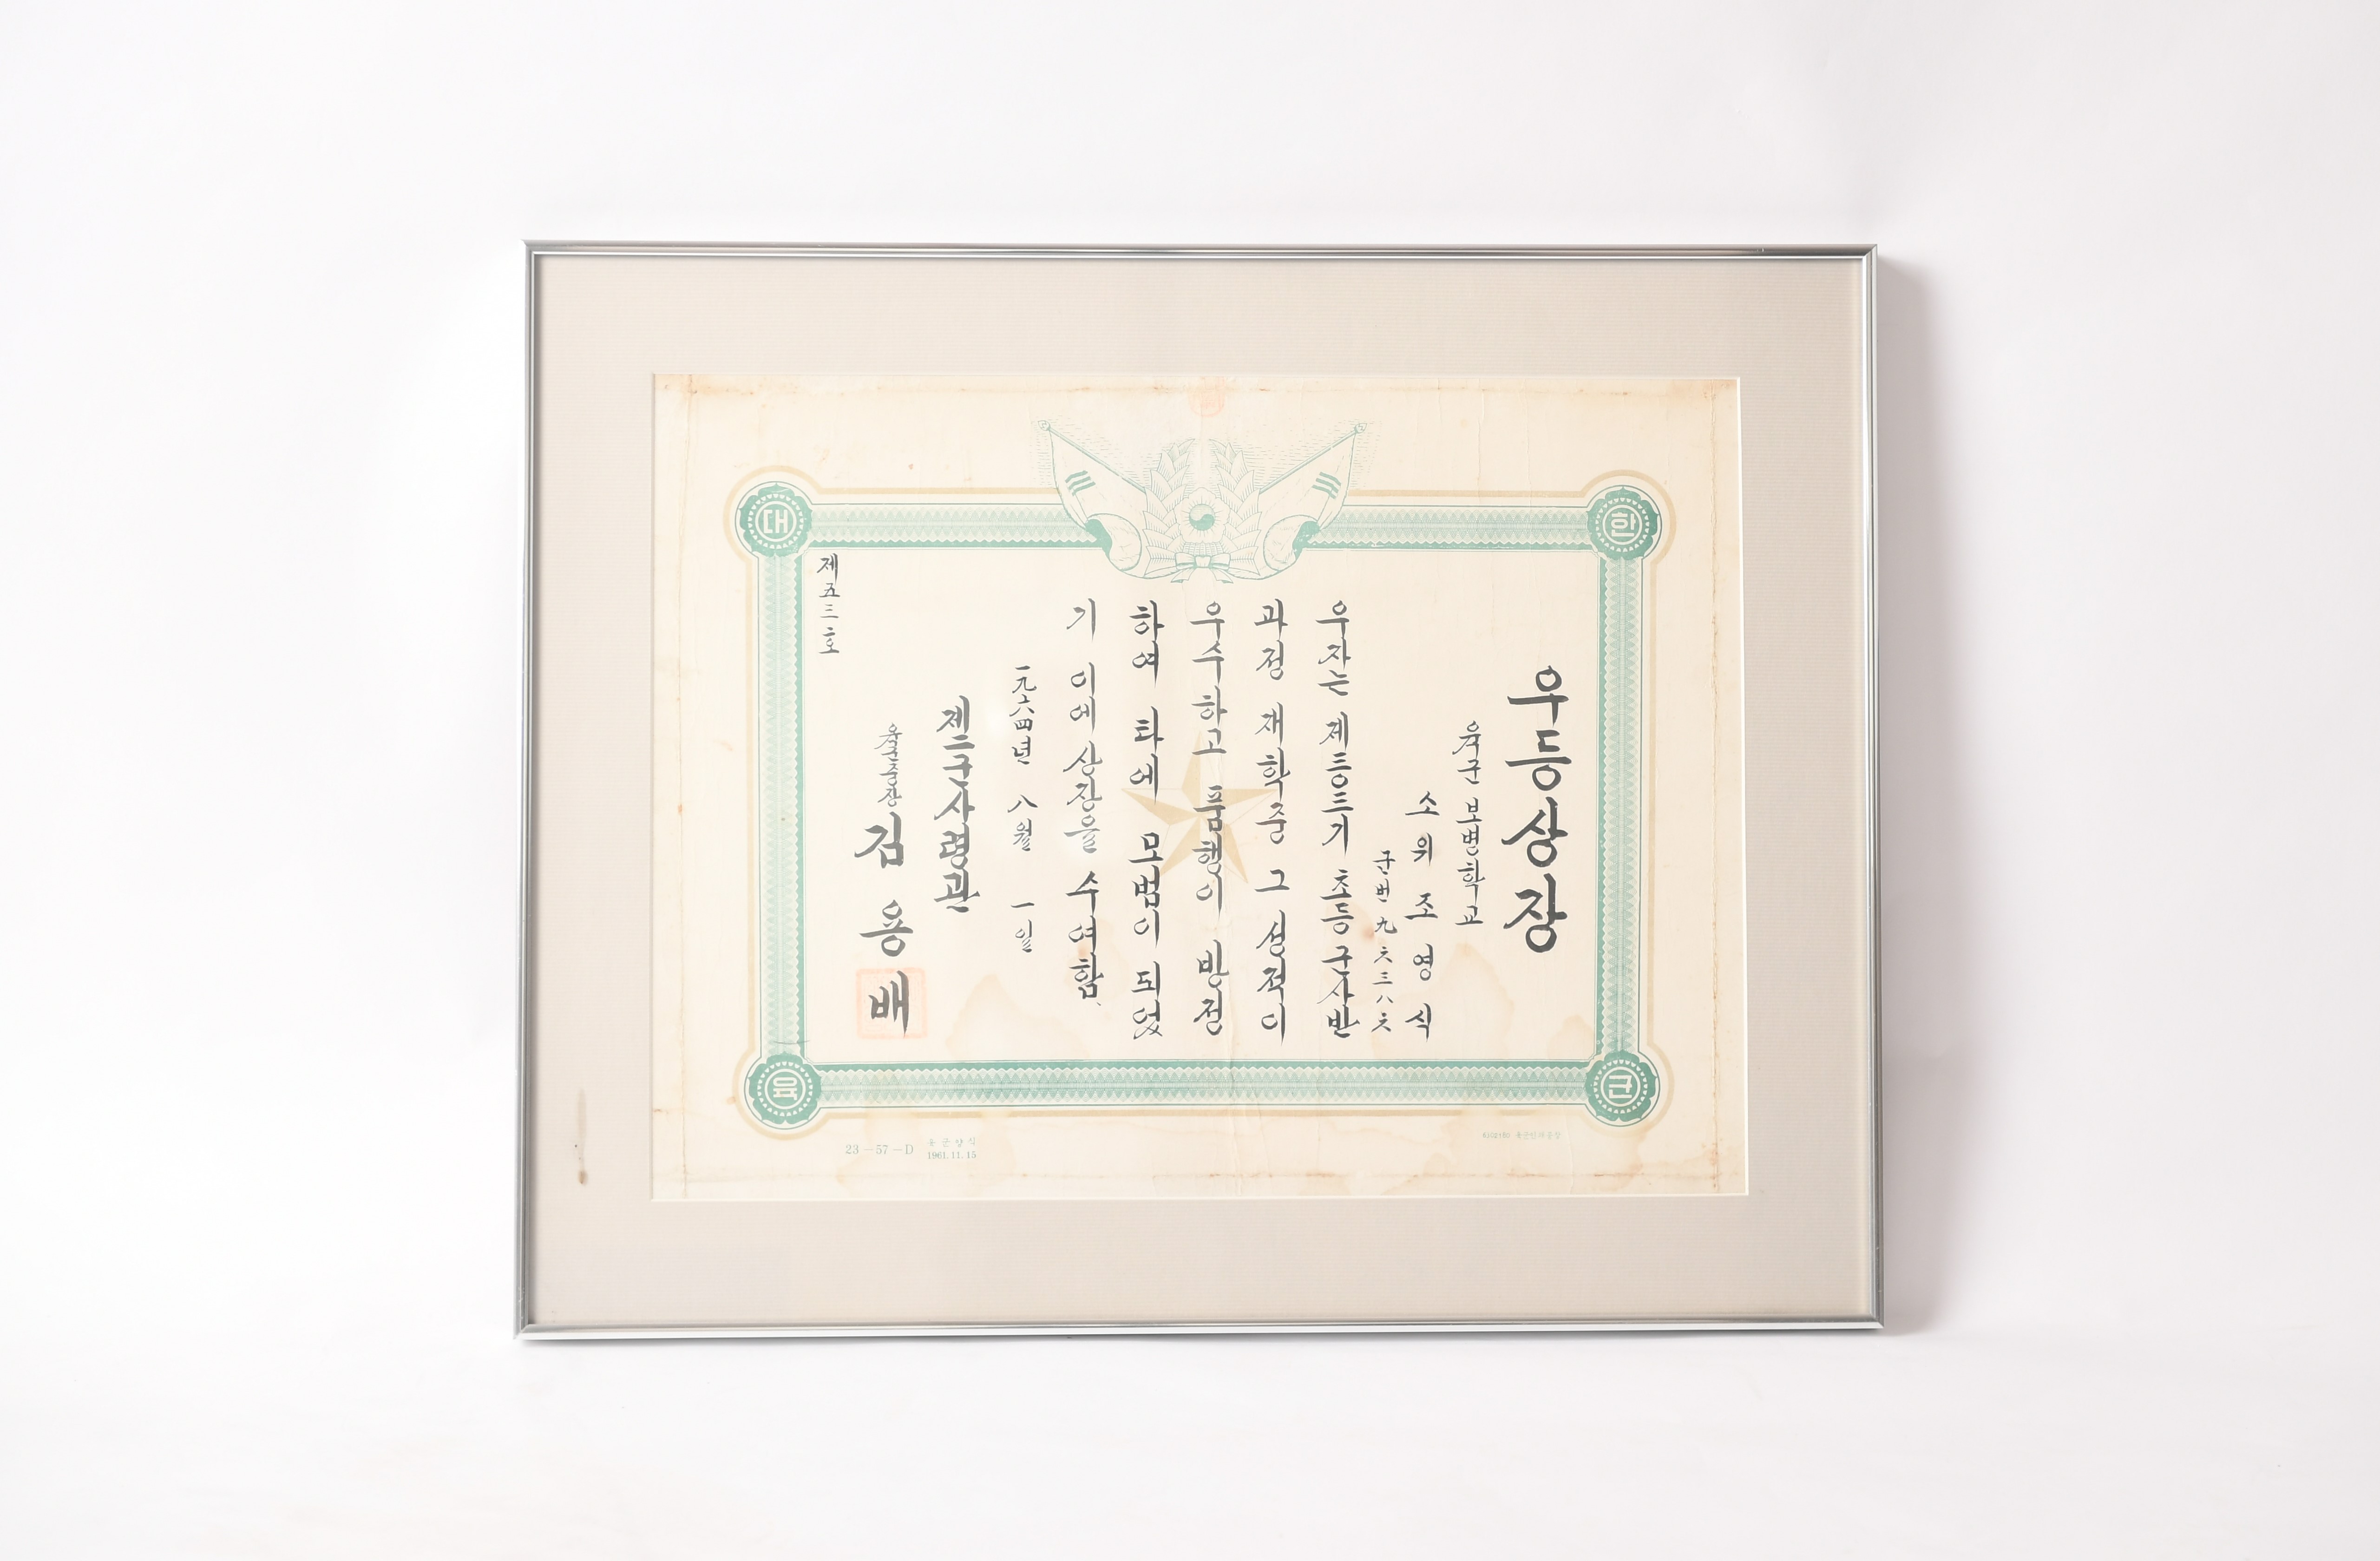 우등상장
육군 보병학교
소위 조영식
군번 九六三八六
우자는 제三○三기 초등군사반
과정 재학중 그 성적이
우수하고 품행이 방정
하여 타에 모범이 되었
기 이에 상장을 수여함.
一九六四년 八월 一일
제二군사령관
육군중장 김용배
제五三호
대
한
육
군
23-57-D
육군양식
1961.11.15